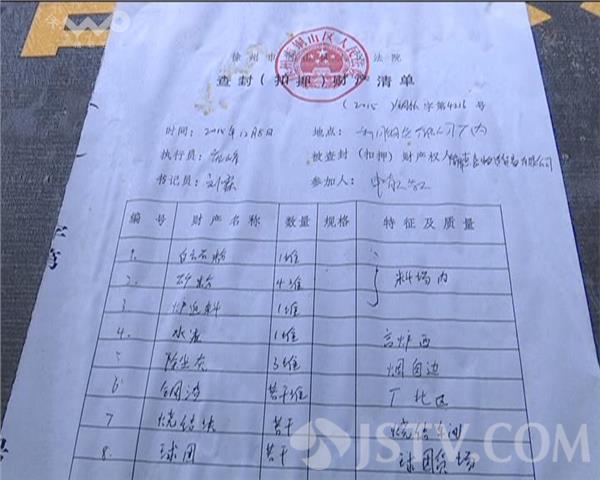 徐州市铜山区人民法院
查封(扣押)财产清单
(2015)铜执字第4216号
时间:2015年12月8日 地点:
执行员: 被查封(扣押)财产权人:
书记员: 参加人:
编号 财产名称 数量 规格 特征及质量
1. 白云石粉 1堆
2. 矿粉 4堆 料场内
3. 炉返料 1堆
4. 水渣 1堆 高炉西
5 除尘灰 3堆 烟囱边
6 钢渣 若干堆 厂北区
7 烧结块 若干 烧结车间
8. 球团 若干 球团货场
JSTV.COM